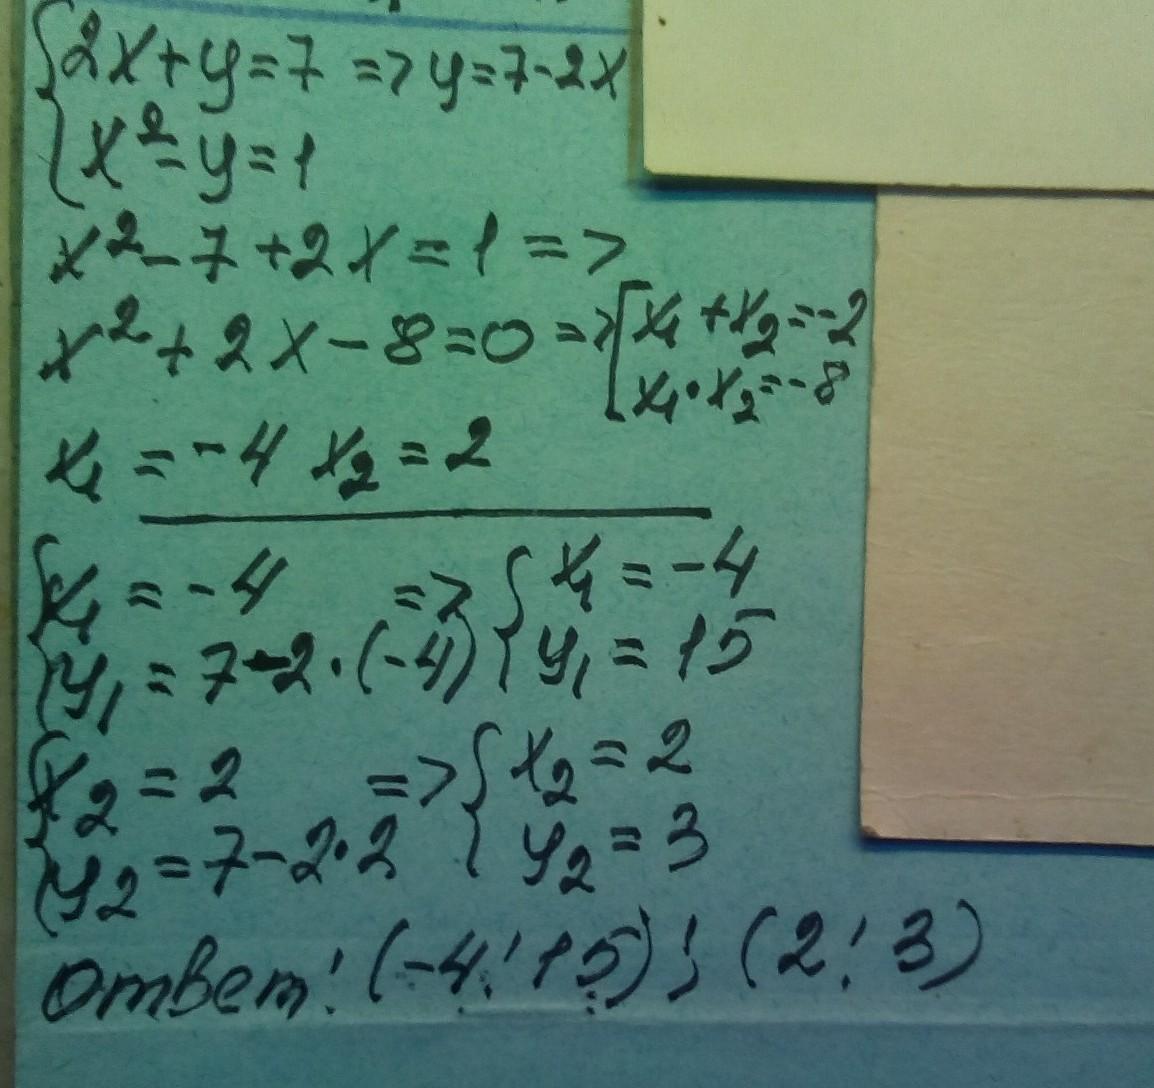 {2x+y=7 => y=7-2x
{x²-y=1
x²-7+2x=1 =>
x²+2x-8=0 => [x₁+x₂=-2
[x₁·x₂=-8
x₁=-4 x₂=2
{x₁=-4 => {x₁=-4
{y₁=7-2·(-4) {y₁=15
{x₂=2 => {x₂=2
{y₂=7-2·2 {y₂=3
Ответ: (-4; 15); (2; 3)